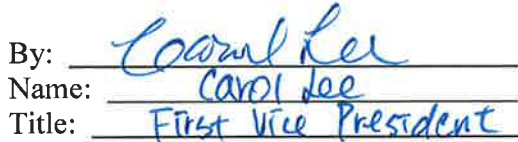 By: Carol Lee
Name: Carol Lee
Title: First Vice President